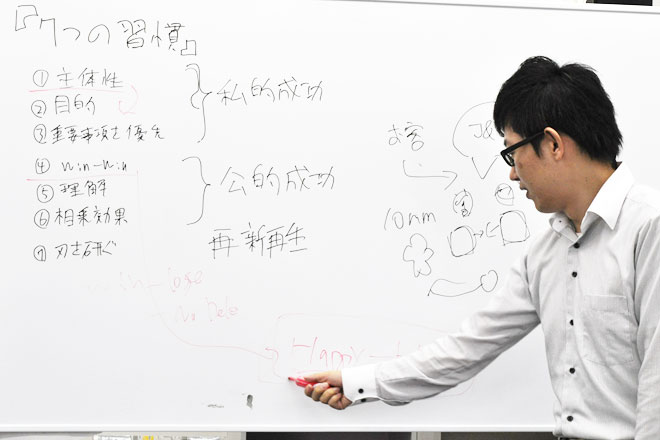 『7つの習慣』
① 主体性
② 目的
③ 重要事項を優先
私的成功
④ win-win
⑤ 理解
⑥ 相乗効果
公的成功
⑦ 刃を研ぐ
再新再生
お客
10nm
win-lose
no
Happy